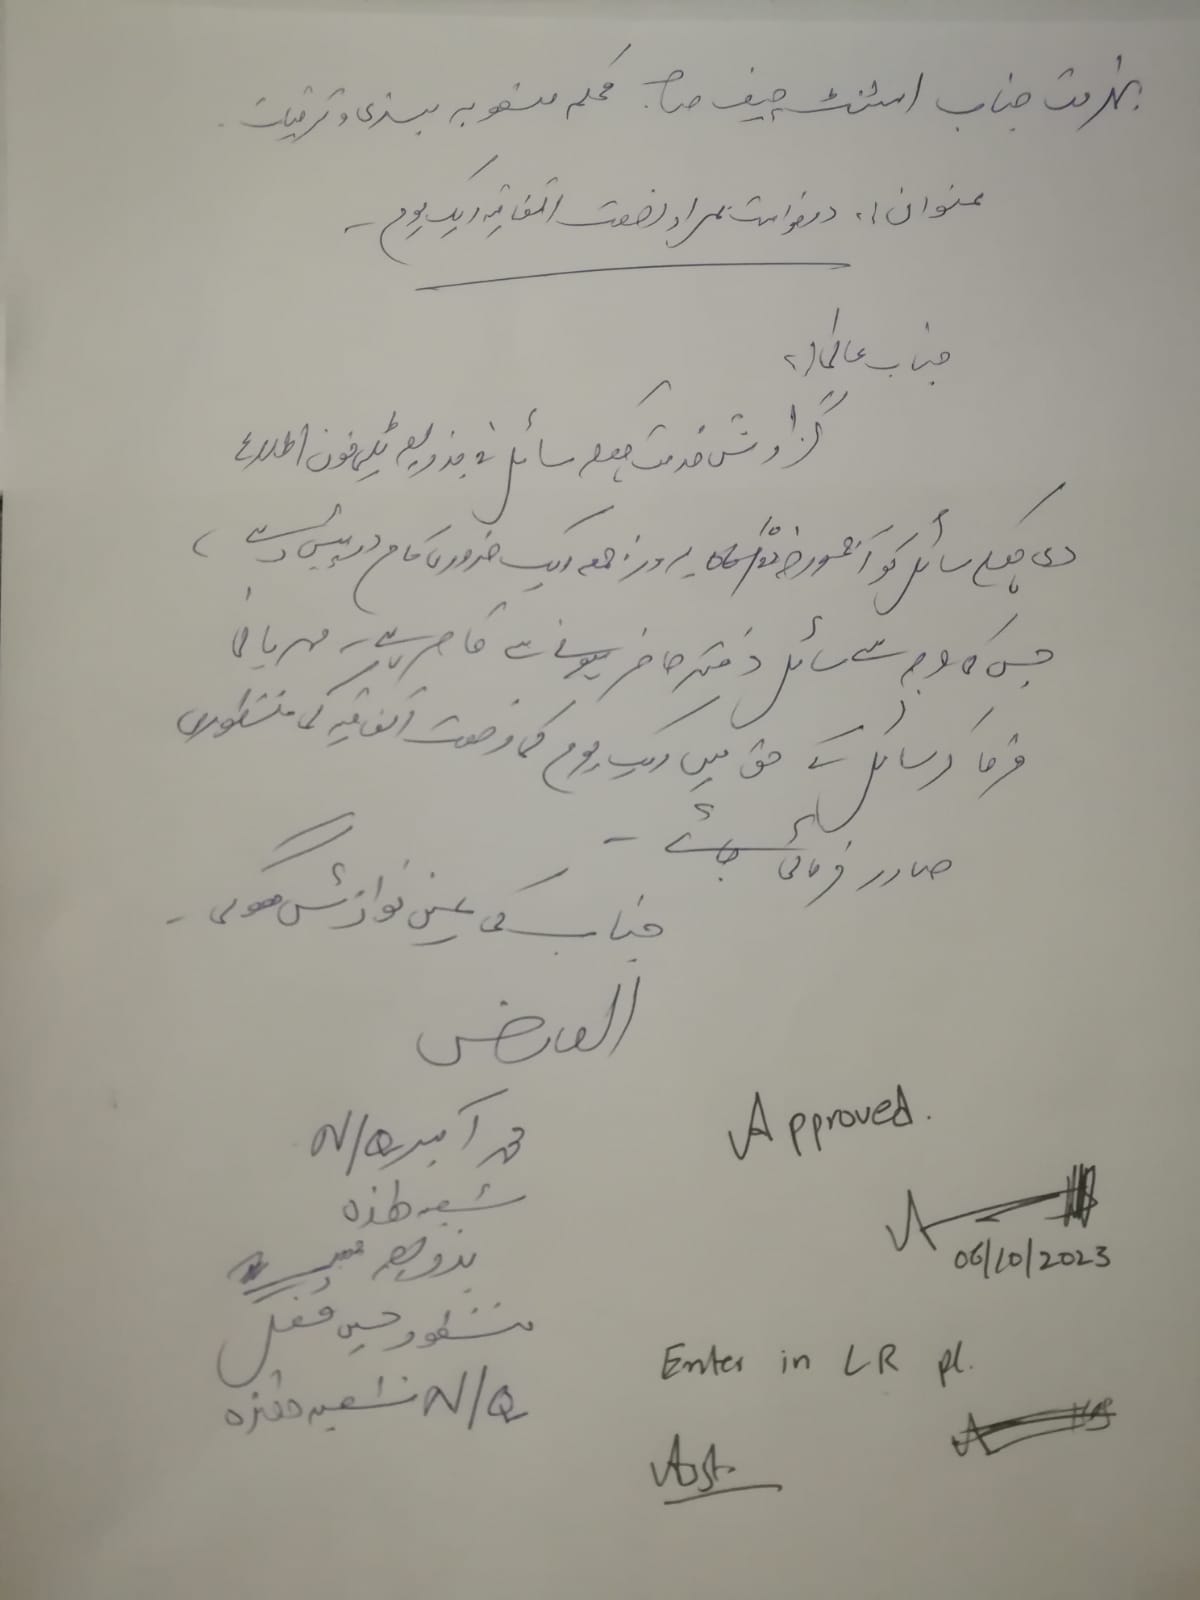 بخدمت جناب اسسٹنٹ چیف صاحب محکمہ منصوبہ بندی و ترقیات۔
عنوان:۔ درخواست بمراد رخصت اتفاقیہ ایک یوم۔
جناب عالی!
گزارش خدمت ہیکہ سائل نے بذریعہ ٹیلی فون اطلاع
دی ہیکہ سائل کو آج مورخہ 06/10 بروز جمعہ ایک ضروری کام درپیش ہے،
جس کی وجہ سے سائل دفتر حاضر ہونے سے قاصر ہے۔ مہربانی
فرما کر سائل کے حق میں ایک یوم کی رخصت اتفاقیہ کی منظوری
صادر فرمائی جائے۔
جناب کی عین نوازش ہوگی۔
العارض
N/Q
شعبہ ھذہ
بذریعہ
منظور حسین
N/Q شعبہ
Approved.
06/10/2023
Enter in LR pl.
Asst.